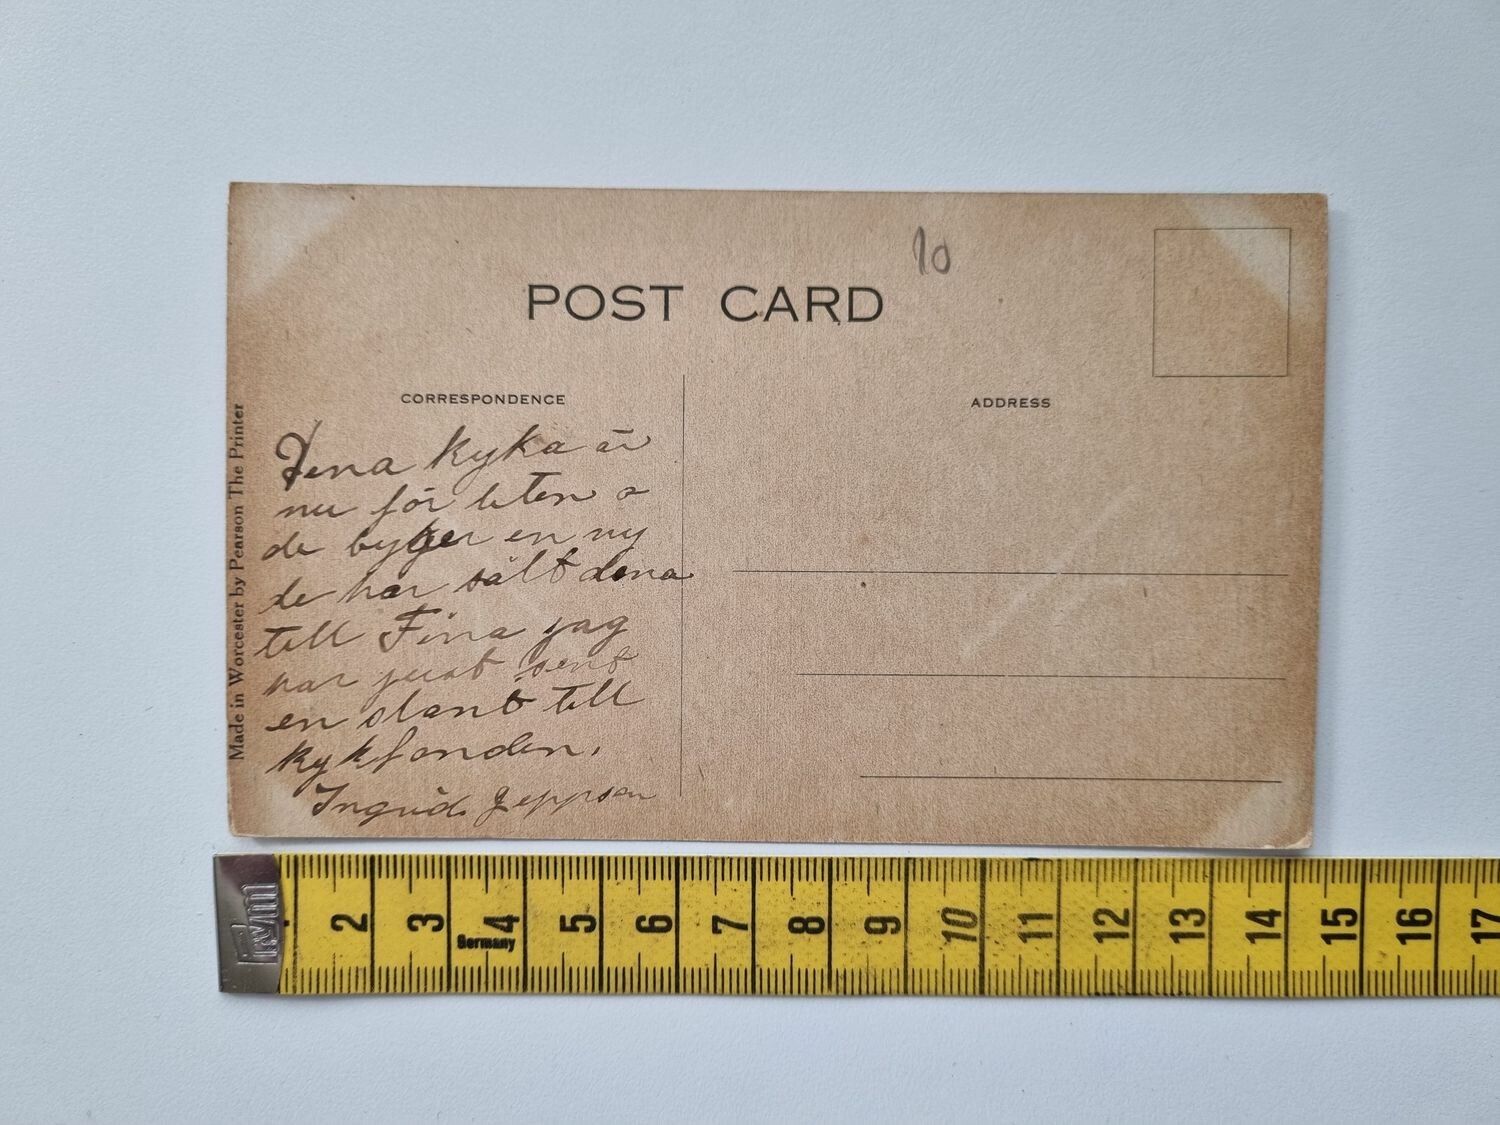 10
POST CARD
CORRESPONDENCE
ADDRESS
Made in Worcester by Pearson The Printer
Dena kyka är
nu för liten o
de byger en ny
de har sält dena
till Fina jag
har just sent
en slant till
kykfonden.
Ingrid Jeppson
Prym
2 3 4 5 6 7 8 9 10 11 12 13 14 15 16 17
Germany